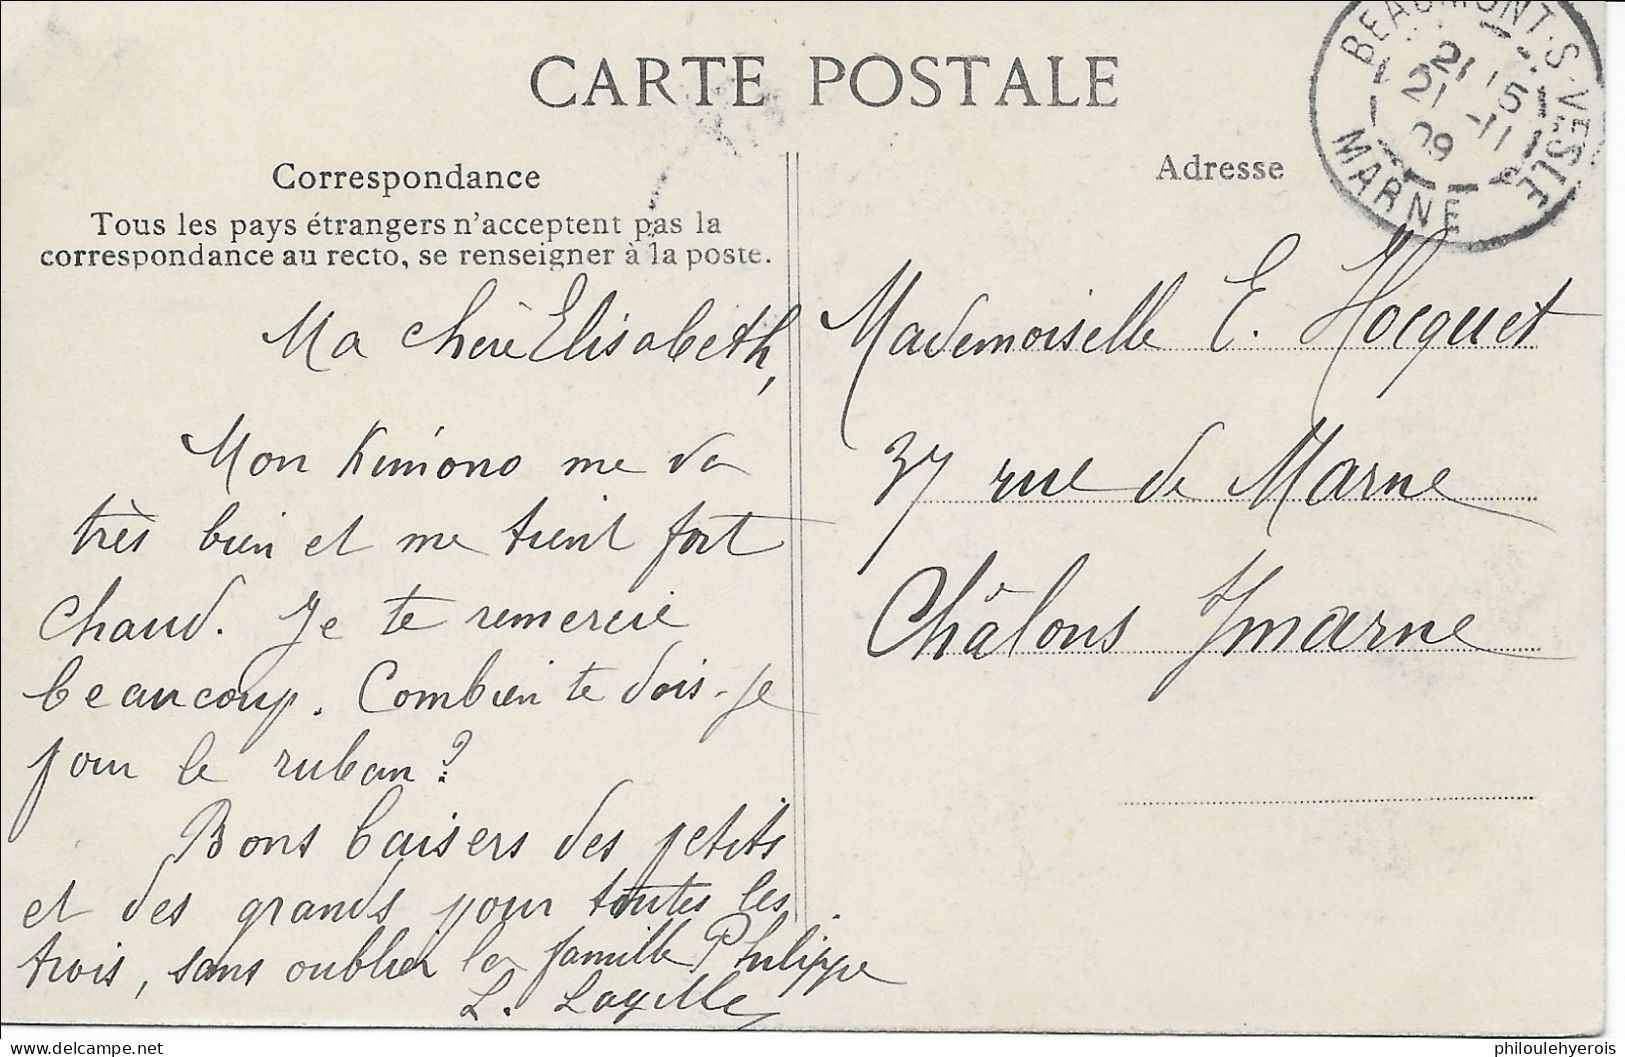 CARTE POSTALE
BEAUMONT-S-VESLE
21 15
21 -11
09
MARNE
Correspondance
Tous les pays étrangers n'acceptent pas la
correspondance au recto, se renseigner à la poste.
Ma chère Elisabeth,
Mon Kimono me va
très bien et me tient fort
chaud. Je te remercie
beaucoup. Combien te dois-je
pour le ruban?
Bons baisers des petits
et des grands pour toutes les
trois, sans oublier la famille Philippe
L.
Adresse
Mademoiselle E. Hocquet
37 rue de Marne
Châlons s/marne
delcampe.net
philoulehyerois